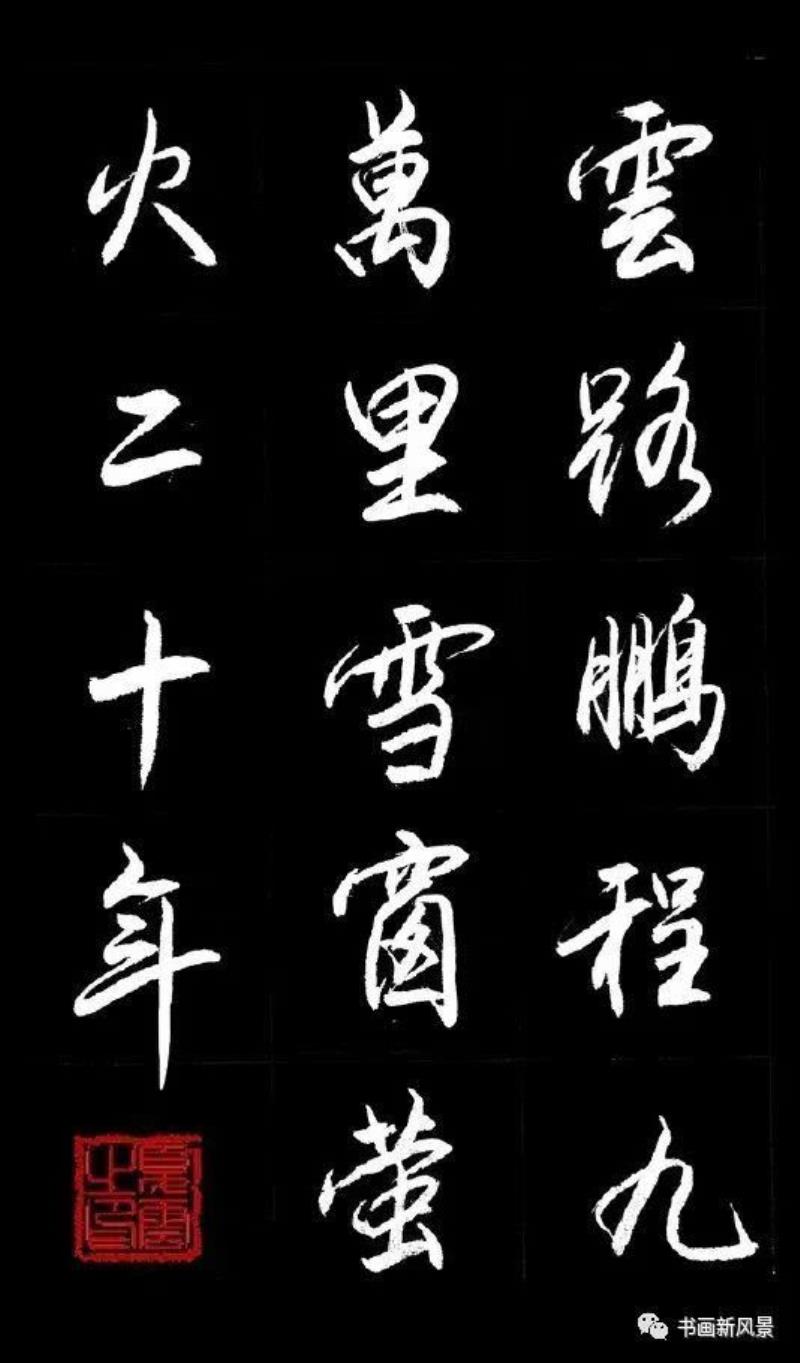 雲路鵬程九
萬里雪窗萤
火二十年
书画新风景